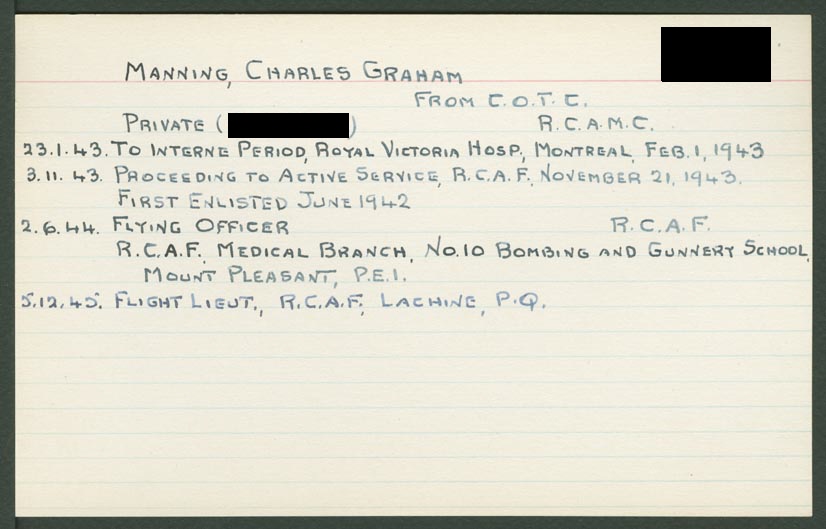 MANNING, CHARLES GRAHAM
FROM C.O.T.C.
PRIVATE ( ) R.C.A.M.C.
23.1.43. TO INTERNE PERIOD, ROYAL VICTORIA HOSP., MONTREAL, FEB. 1, 1943
3.11.43. PROCEEDING TO ACTIVE SERVICE, R.C.A.F., NOVEMBER 21, 1943.
FIRST ENLISTED JUNE 1942
2.6.44. FLYING OFFICER R.C.A.F.
R.C.A.F. MEDICAL BRANCH, NO.10 BOMBING AND GUNNERY SCHOOL,
MOUNT PLEASANT, P.E.I.
5.12.45. FLIGHT LIEUT., R.C.A.F., LACHINE, P.Q.